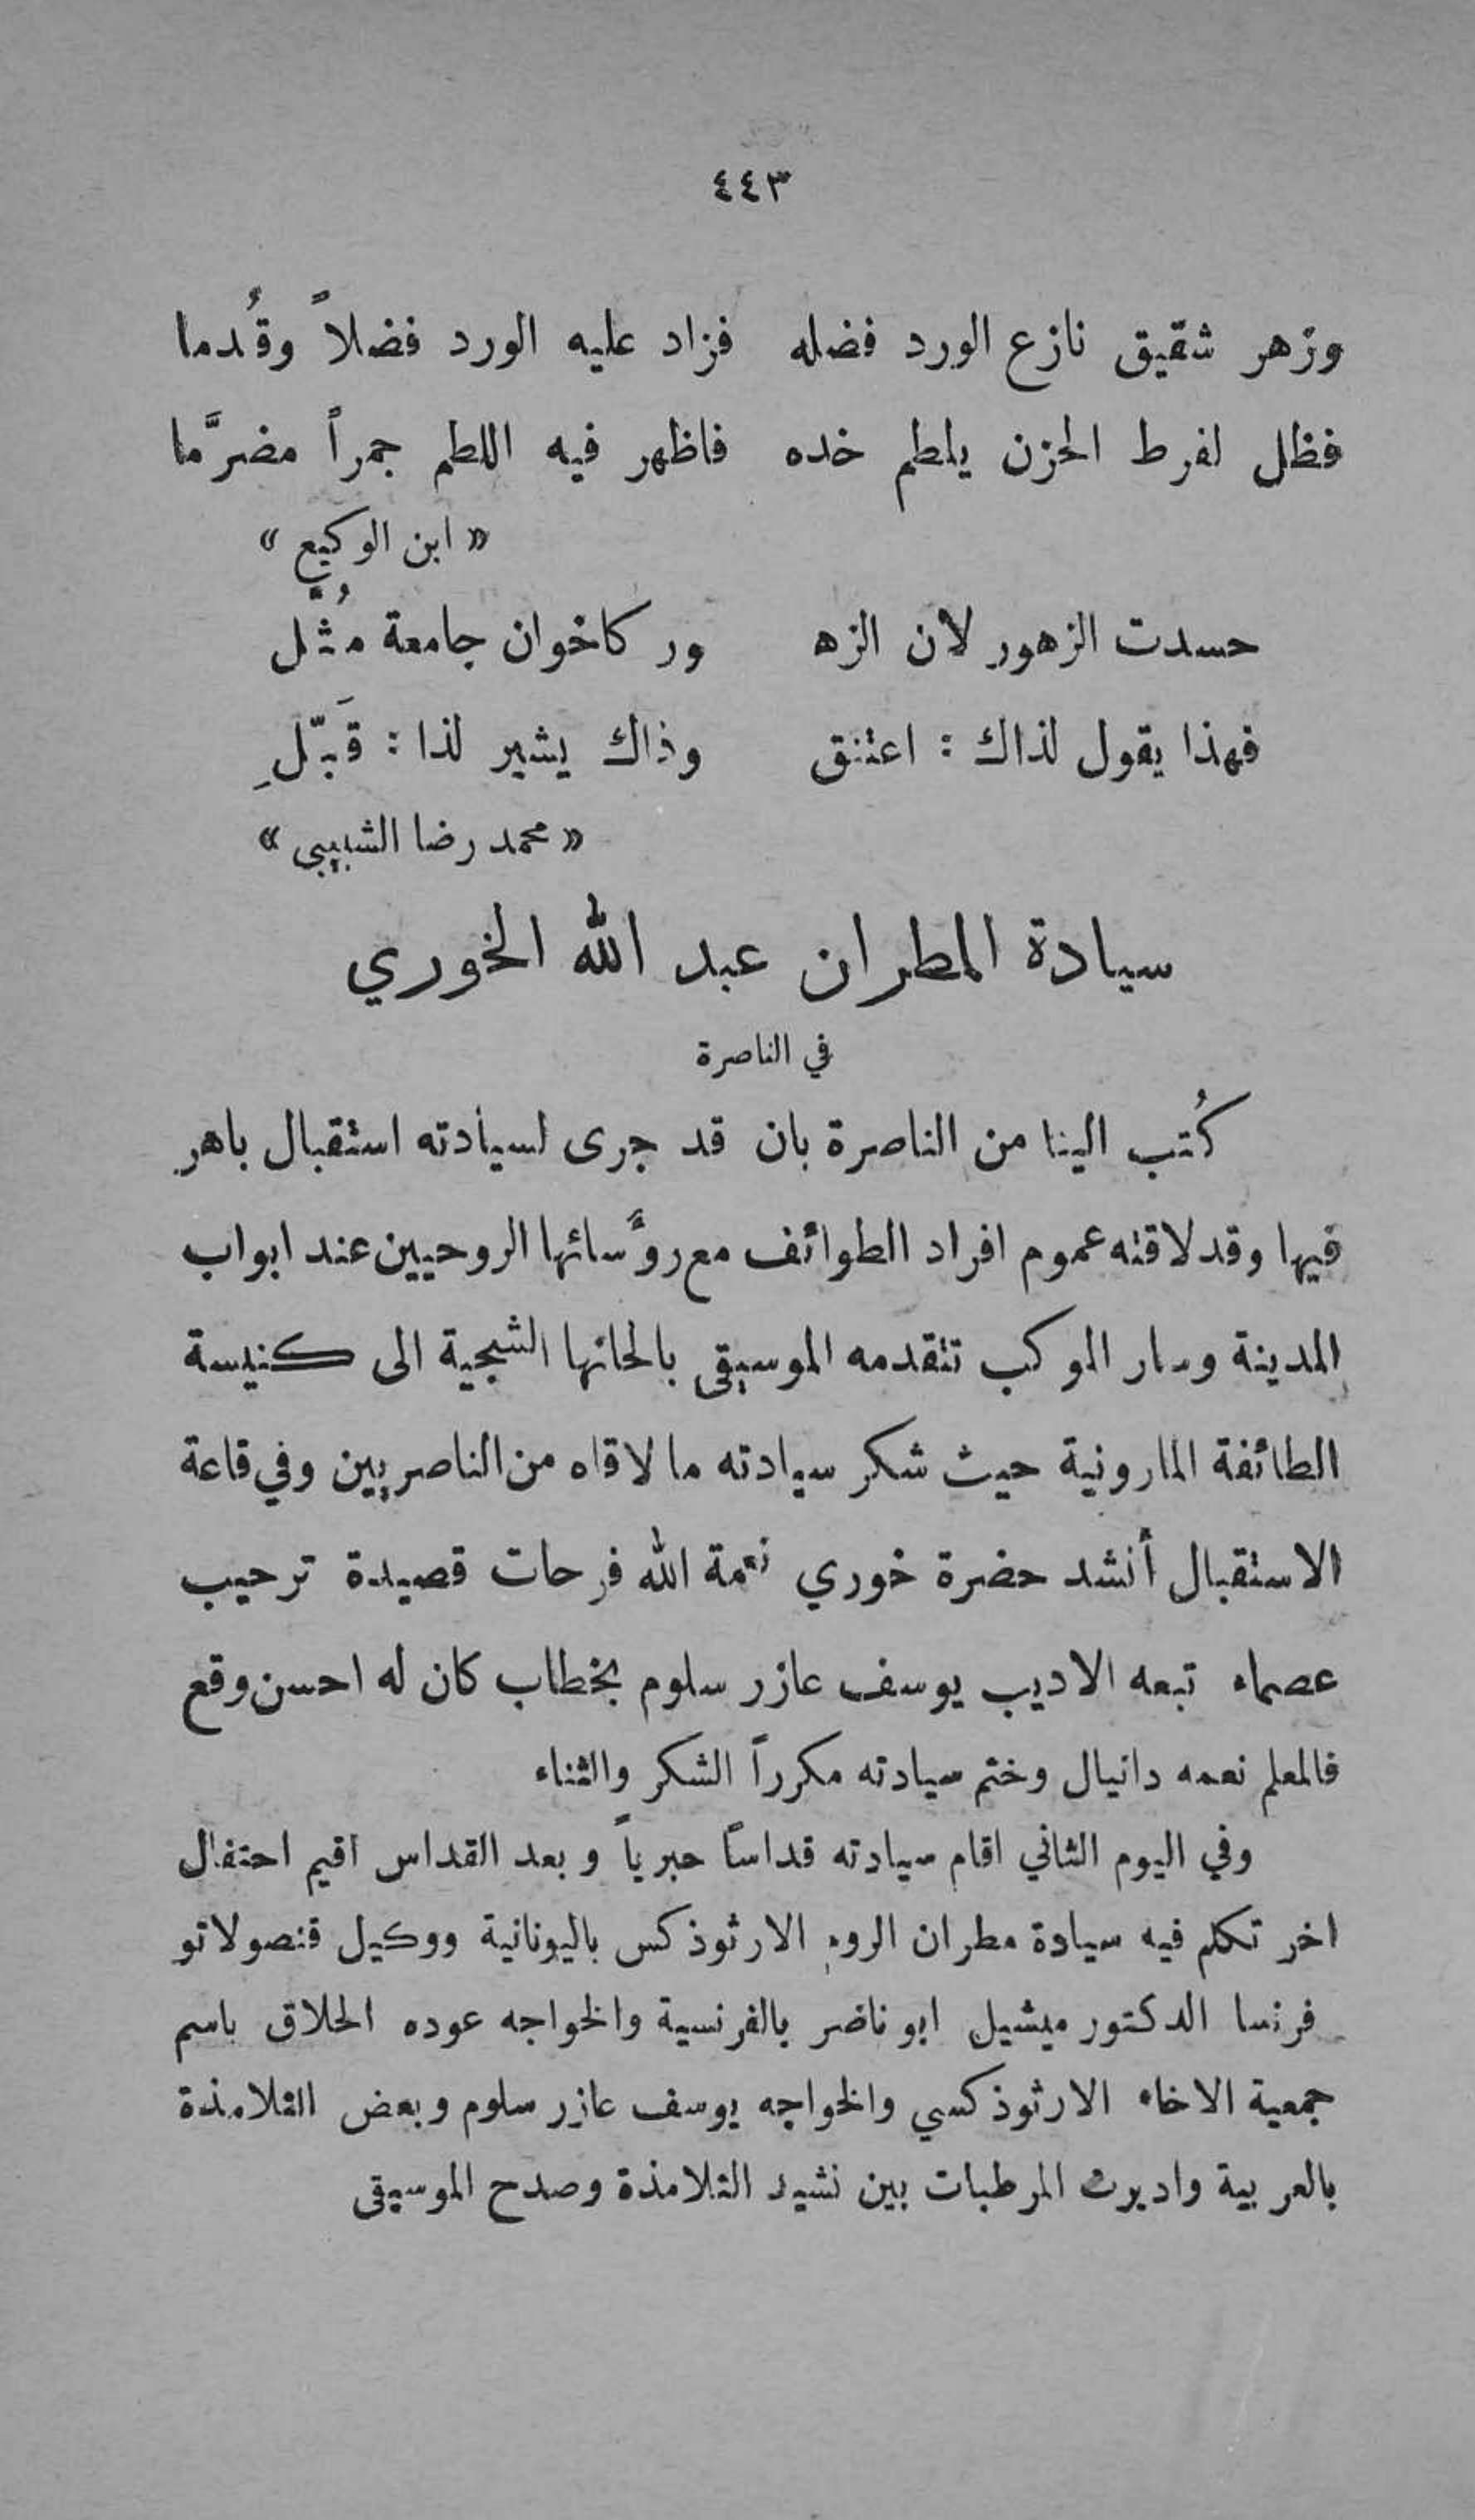 ٤٤٣
وزهر شقيق نازع الورد فضله فزاد عليه الورد فضلاً وقُدما
فظل لفرط الحزن يلطم خده فاظهر فيه اللطم جمراً مضرَّما
« ابن الوكيع »
حسدت الزهور لان الزه ور كاخوان جامعة مُثّل
فهذا يقول لذاك : اعتنق وذاك يشير لذا : قَبّلِ
« محمد رضا الشبيبي »
سيادة المطران عبد الله الخوري
في الناصرة
كُتب الينا من الناصرة بان قد جرى لسيادته استقبال باهر
فيها وقد لاقته عموم افراد الطوائف مع رؤَسائها الروحيين عند ابواب
المدينة وسار الموكب تتقدمه الموسيقى بالحانها الشجية الى كنيسة
الطائفة المارونية حيث شكر سيادته ما لاقاه من الناصريين وفي قاعة
الاستقبال أنشد حضرة خوري نعمة الله فرحات قصيدة ترحيب
عصماء تبعه الاديب يوسف عازر سلوم بخطاب كان له احسن وقع
فالمعلم نعمه دانيال وختم سيادته مكرراً الشكر والثناء
وفي اليوم الثاني اقام سيادته قداساً حبرياً وبعد القداس اقيم احتفال
اخر تكلم فيه سيادة مطران الروم الارثوذكس باليونانية ووكيل قنصولاتو
فرنسا الدكتور ميشيل ابو ناضر بالفرنسية والخواجه عوده الحلاق باسم
جمعية الاخاء الارثوذكسي والخواجه يوسف عازر سلوم وبعض التلامذة
بالعربية واديرت المرطبات بين نشيد التلامذة وصدح الموسيقى